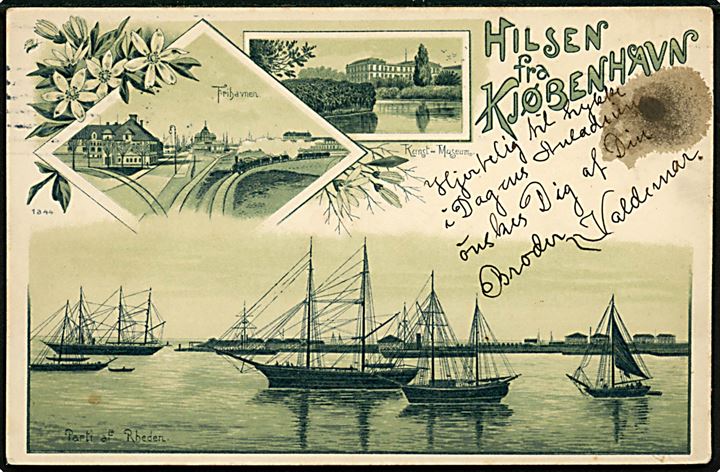 HILSEN
fra
KJØBENHAVN
Frihavnen.
Kunst-Museum.
1844
Hjertelig til Lykke
i Dagens Anledning
önskes Dig af Din
Broder Valdemar.
Parti af Rheden.